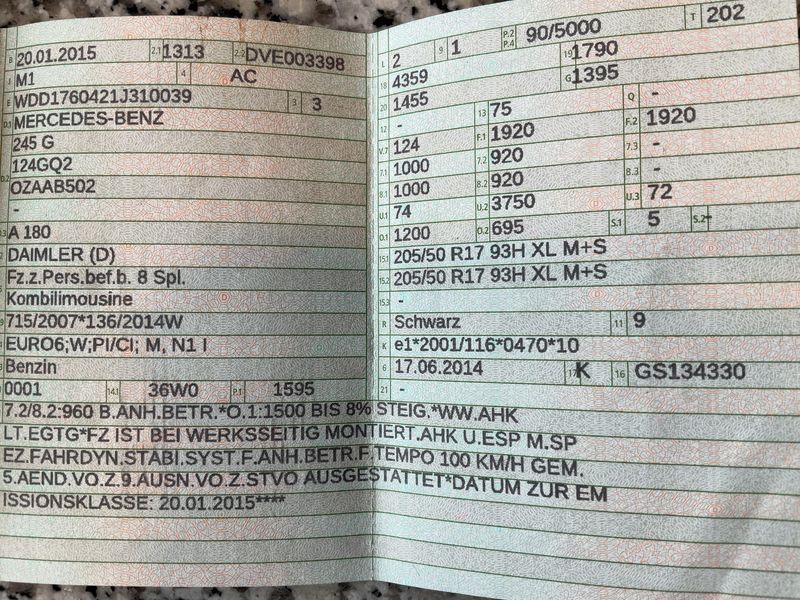 B 20.01.2015 2.1 1313 2.2 DVE003398
J M1 4 AC
E WDD1760421J310039 3 3
D.1 MERCEDES-BENZ
245 G
D.2 124GQ2
OZAAB502
-
D.3 A 180
2 DAIMLER (D)
5 Fz.z.Pers.bef.b. 8 Spl.
Kombilimousine
V.9 715/2007*136/2014W
EURO6;W;PI/CI; M, N1 I
Benzin
0001 14.1 36W0 P.1 1595
L 2 9 1 P.2 P.4 90/5000 T 202
18 4359 19 1790
20 1455 G 1395
12 - 13 75 Q -
V.7 124 F.1 1920 F.2 1920
7.1 1000 7.2 920 7.3 -
8.1 1000 8.2 920 8.3 -
U.1 74 U.2 3750 U.3 72
O.1 1200 O.2 695 S.1 5 S.2 -
15.1 205/50 R17 93H XL M+S
15.2 205/50 R17 93H XL M+S
15.3 -
R Schwarz 11 9
K e1*2001/116*0470*10
6 17.06.2014 17 K 16 GS134330
21 -
7.2/8.2:960 B.ANH.BETR.*O.1:1500 BIS 8% STEIG.*WW.AHK
LT.EGTG*FZ IST BEI WERKSSEITIG MONTIERT.AHK U.ESP M.SP
EZ.FAHRDYN.STABI.SYST.F.ANH.BETR.F.TEMPO 100 KM/H GEM.
5.AEND.VO.Z.9.AUSN.VO.Z.STVO AUSGESTATTET*DATUM ZUR EM
ISSIONSKLASSE: 20.01.2015****